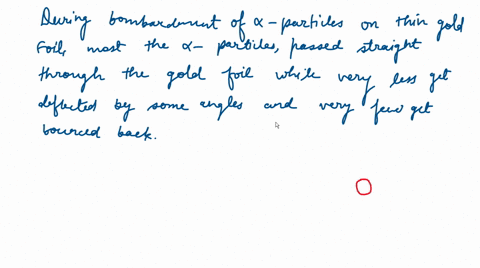 During bombardment of α-particles on thin gold
foil, most the α- particles, passed straight
through the gold foil while very less get
deflected by some angles and very few get
bounced back.